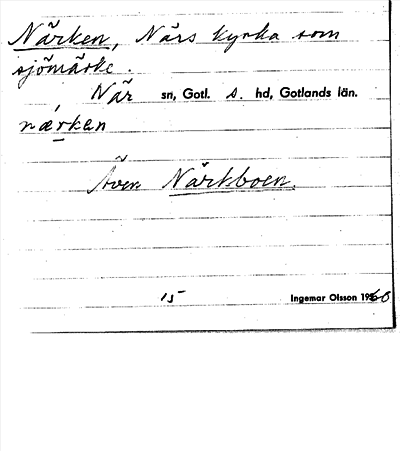 Närken, När's kyrka som
sjömärke.
När sn, Gotl. s. hd, Gotlands län.
nærken
Även Närkboen.
15 Ingemar Olsson 1960